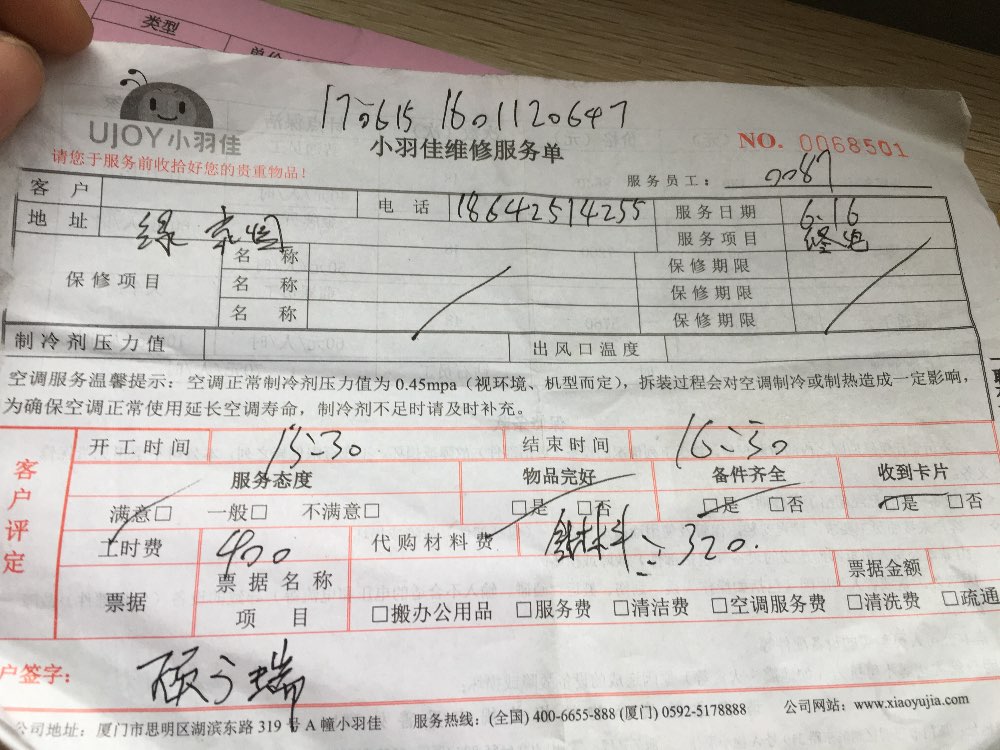 类型
单价
170615 1601120647
UJOY小羽佳
小羽佳维修服务单
NO. 0068501
请您于服务前收拾好您的贵重物品！
服务员工： 0087
客 户 电 话 18642514255 服务日期 6.16
地 址 绿 服务项目
保修项目 名 称 保修期限
名 称 保修期限
名 称 保修期限
制冷剂压力值 出风口温度
空调服务温馨提示：空调正常制冷剂压力值为 0.45mpa（视环境、机型而定），拆装过程会对空调制冷或制热造成一定影响，
为确保空调正常使用延长空调寿命，制冷剂不足时请及时补充。
客户评定
开工时间 15:30 结束时间 16:30
服务态度 物品完好 备件齐全 收到卡片
满意□ 一般□ 不满意□ □是 □否 □是 □否 □是 □否
工时费 400 代购材料费 材料：320.
票据 票据名称 票据金额
项 目 □搬办公用品 □服务费 □清洁费 □空调服务费 □清洗费 □疏通
户签字：
公司地址：厦门市思明区湖滨东路 319 号 A 幢小羽佳 服务热线：(全国) 400-6655-888 (厦门) 0592-5178888 公司网站：www.xiaoyujia.com